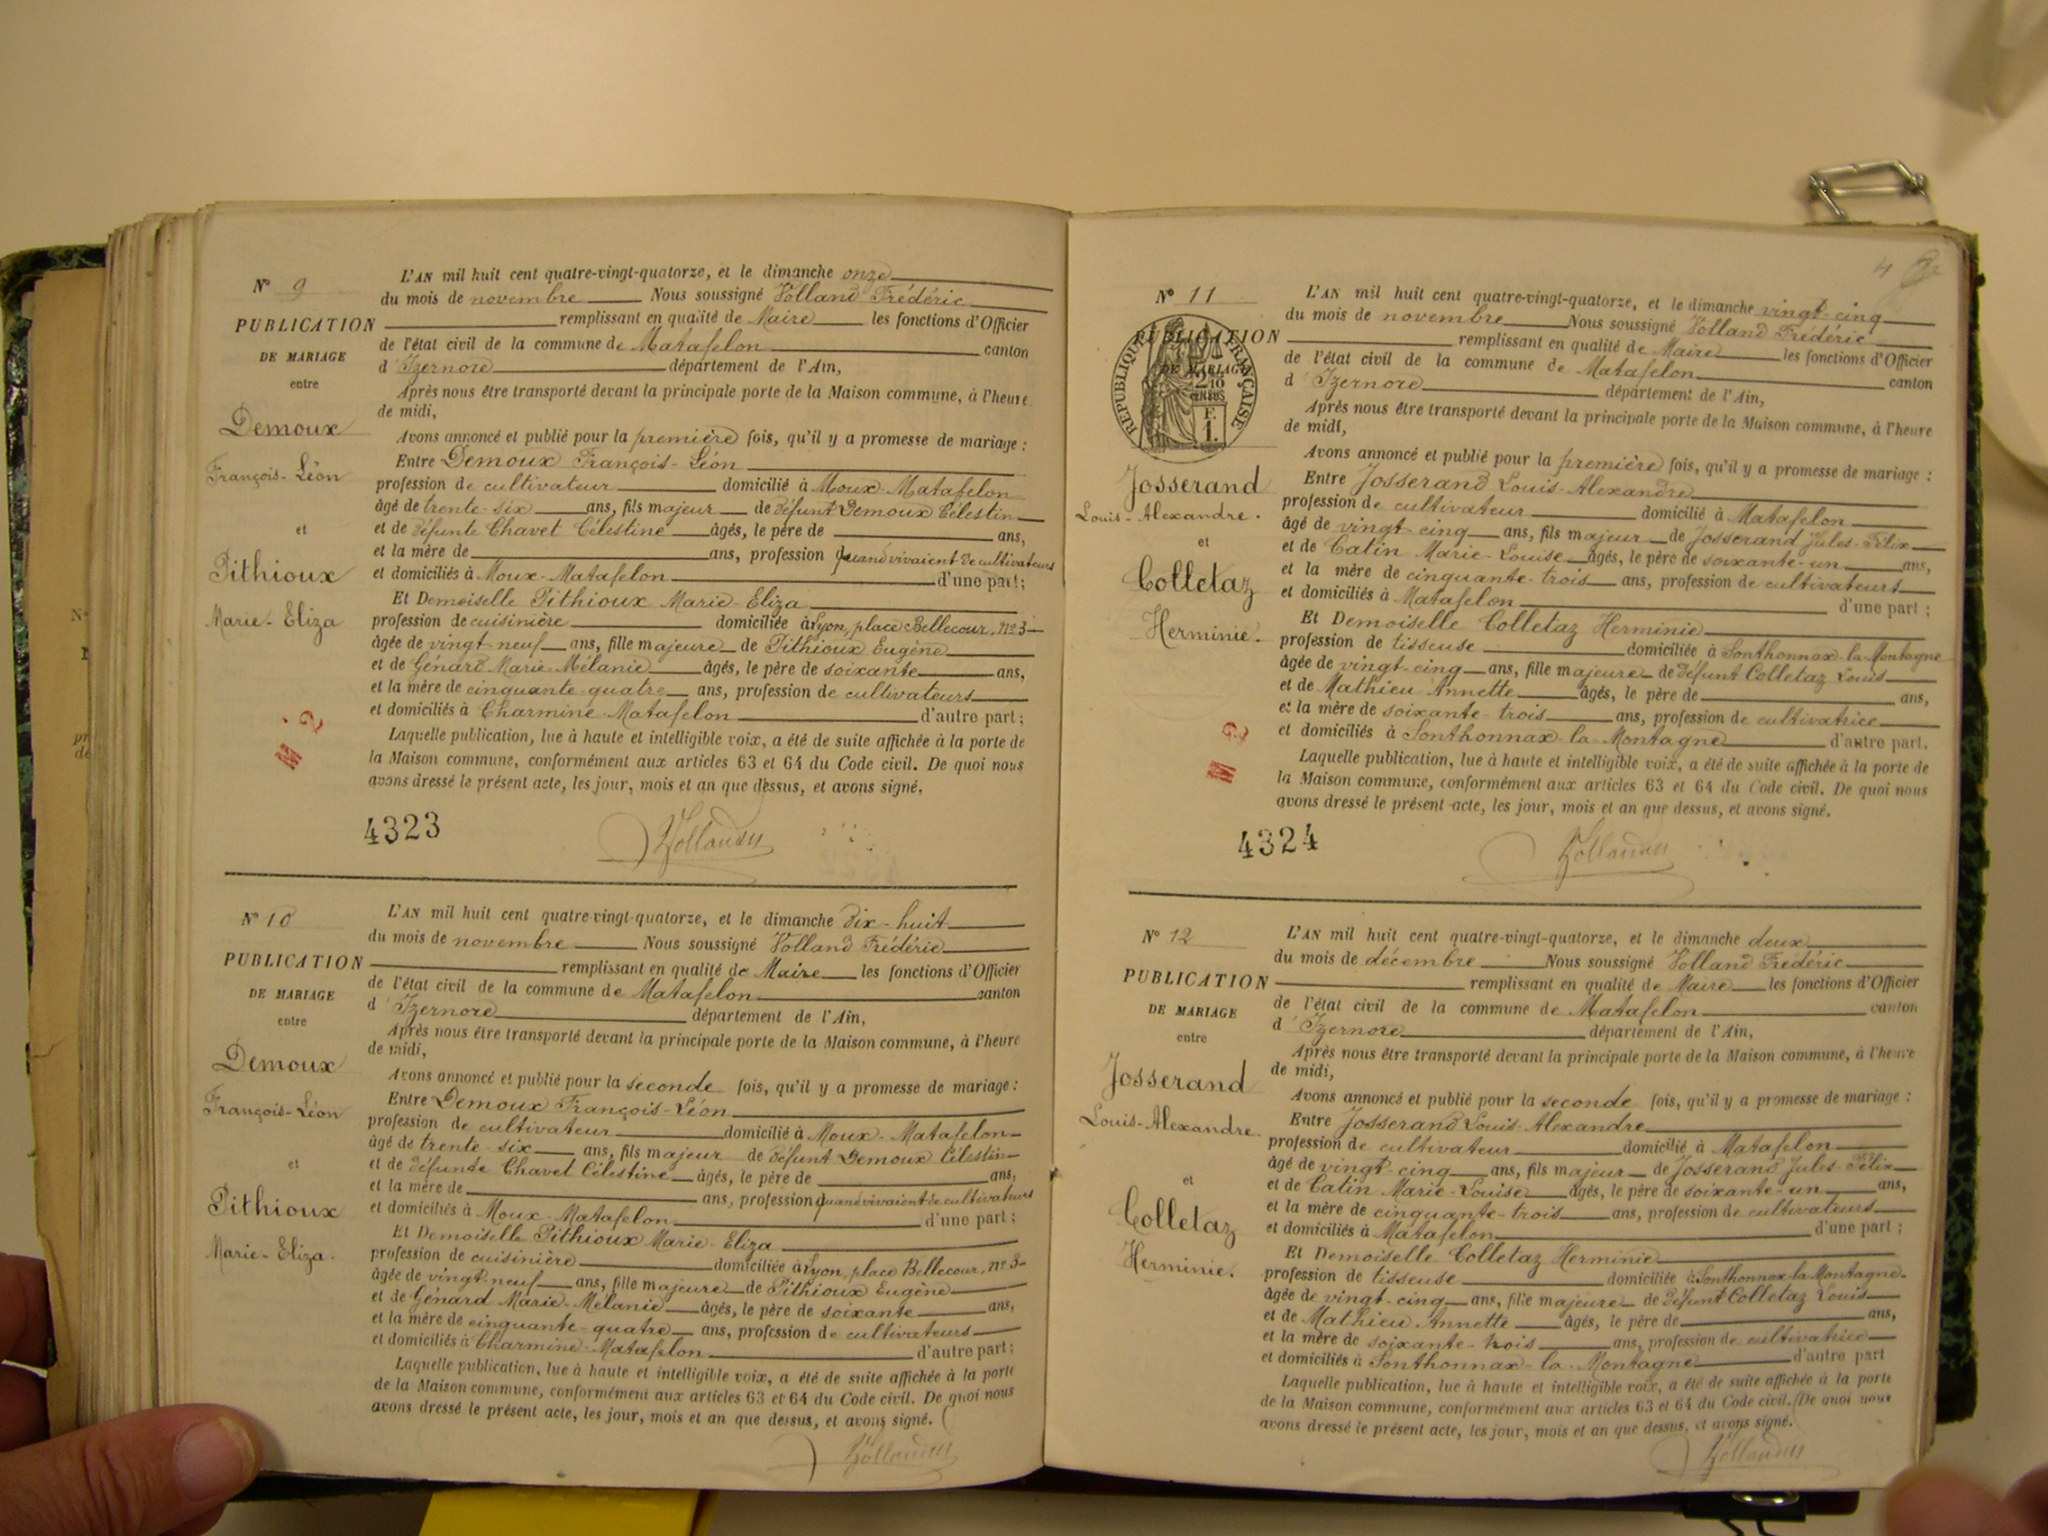 N° 9
PUBLICATION
DE MARIAGE
entre
Demoux
François-Léon
et
Pithioux
Marie-Eliza
L'AN mil huit cent quatre-vingt-quatorze, et le dimanche onze
du mois de novembre Nous soussigné Volland Frédéric
remplissant en qualité de Maire les fonctions d'Officier
de l'état civil de la commune de Matafelon canton
d'Izernore département de l'Ain,
Après nous être transporté devant la principale porte de la Maison commune, à l'heure
de midi,
Avons annoncé et publié pour la première fois, qu'il y a promesse de mariage :
Entre Demoux François-Léon
profession de cultivateur domicilié à Moux-Matafelon
âgé de trente-six ans, fils majeur de défunt Demoux Célestin
et de défunte Chavet Célestine âgés, le père de ans,
et la mère de ans, profession quand vivaient de cultivateurs
et domiciliés à Moux-Matafelon d'une part;
Et Demoiselle Pithioux Marie-Eliza
profession de cuisinière domiciliée à Lyon, place Bellecour, n° 3
âgée de vingt-neuf ans, fille majeure de Pithioux Eugène
et de Génard Marie-Mélanie âgés, le père de soixante ans,
et la mère de cinquante-quatre ans, profession de cultivateurs
et domiciliés à Charmine-Matafelon d'autre part;
Laquelle publication, lue à haute et intelligible voix, a été de suite affichée à la porte de
la Maison commune, conformément aux articles 63 et 64 du Code civil. De quoi nous
avons dressé le présent acte, les jour, mois et an que dessus, et avons signé.
M 2
4323
N° 10
PUBLICATION
DE MARIAGE
entre
Demoux
François-Léon
et
Pithioux
Marie-Eliza.
L'AN mil huit cent quatre-vingt-quatorze, et le dimanche dix-huit
du mois de novembre Nous soussigné Volland Frédéric
remplissant en qualité de Maire les fonctions d'Officier
de l'état civil de la commune de Matafelon canton
d'Izernore département de l'Ain,
Après nous être transporté devant la principale porte de la Maison commune, à l'heure
de midi,
Avons annoncé et publié pour la seconde fois, qu'il y a promesse de mariage :
Entre Demoux François-Léon
profession de cultivateur domicilié à Moux-Matafelon
âgé de trente-six ans, fils majeur de défunt Demoux Célestin
et de défunte Chavet Célestine âgés, le père de ans,
et la mère de ans, profession quand vivaient de cultivateurs
et domiciliés à Moux-Matafelon d'une part;
Et Demoiselle Pithioux Marie-Eliza
profession de cuisinière domiciliée à Lyon, place Bellecour, n° 3
âgée de vingt-neuf ans, fille majeure de Pithioux Eugène
et de Génard Marie-Mélanie âgés, le père de soixante ans,
et la mère de cinquante-quatre ans, profession de cultivateurs
et domiciliés à Charmine-Matafelon d'autre part;
Laquelle publication, lue à haute et intelligible voix, a été de suite affichée à la porte
de la Maison commune, conformément aux articles 63 et 64 du Code civil. De quoi nous
avons dressé le présent acte, les jour, mois et an que dessus, et avons signé.
4
N° 11
PUBLICATION
DE MARIAGE
RÉPUBLIQUE FRANÇAISE
2/10
EN SUS
F.
1.
Josserand
Louis-Alexandre.
et
Colletaz
Herminie.
L'AN mil huit cent quatre-vingt-quatorze, et le dimanche vingt-cinq
du mois de novembre Nous soussigné Volland Frédéric
remplissant en qualité de Maire les fonctions d'Officier
de l'état civil de la commune de Matafelon canton
d'Izernore département de l'Ain,
Après nous être transporté devant la principale porte de la Maison commune, à l'heure
de midi,
Avons annoncé et publié pour la première fois, qu'il y a promesse de mariage :
Entre Josserand Louis-Alexandre
profession de cultivateur domicilié à Matafelon
âgé de vingt-cinq ans, fils majeur de Josserand Jules-Félix
et de Catin Marie-Louise âgés, le père de soixante-un ans,
et la mère de cinquante-trois ans, profession de cultivateurs
et domiciliés à Matafelon d'une part ;
Et Demoiselle Colletaz Herminie
profession de tisseuse domiciliée à Sonthonnax-la-Montagne
âgée de vingt-cinq ans, fille majeure de défunt Colletaz Louis
et de Mathieu Annette âgés, le père de ans,
et la mère de soixante-trois ans, profession de cultivatrice
et domiciliés à Sonthonnax-la-Montagne d'autre part.
Laquelle publication, lue à haute et intelligible voix, a été de suite affichée à la porte de
la Maison commune, conformément aux articles 63 et 64 du Code civil. De quoi nous
avons dressé le présent acte, les jour, mois et an que dessus, et avons signé.
M 2
4324
N° 12
PUBLICATION
DE MARIAGE
entre
Josserand
Louis-Alexandre.
et
Colletaz
Herminie.
L'AN mil huit cent quatre-vingt-quatorze, et le dimanche deux
du mois de décembre Nous soussigné Volland Frédéric
remplissant en qualité de Maire les fonctions d'Officier
de l'état civil de la commune de Matafelon canton
d'Izernore département de l'Ain,
Après nous être transporté devant la principale porte de la Maison commune, à l'heure
de midi,
Avons annoncé et publié pour la seconde fois, qu'il y a promesse de mariage :
Entre Josserand Louis-Alexandre
profession de cultivateur domicilié à Matafelon
âgé de vingt-cinq ans, fils majeur de Josserand Jules-Félix
et de Catin Marie-Louise âgés, le père de soixante-un ans,
et la mère de cinquante-trois ans, profession de cultivateurs
et domiciliés à Matafelon d'une part ;
Et Demoiselle Colletaz Herminie
profession de tisseuse domiciliée à Sonthonnax-la-Montagne
âgée de vingt-cinq ans, fille majeure de défunt Colletaz Louis
et de Mathieu Annette âgés, le père de ans,
et la mère de soixante-trois ans, profession de cultivatrice
et domiciliés à Sonthonnax-la-Montagne d'autre part
Laquelle publication, lue à haute et intelligible voix, a été de suite affichée à la porte
de la Maison commune, conformément aux articles 63 et 64 du Code civil. De quoi nous
avons dressé le présent acte, les jour, mois et an que dessus, et avons signé.